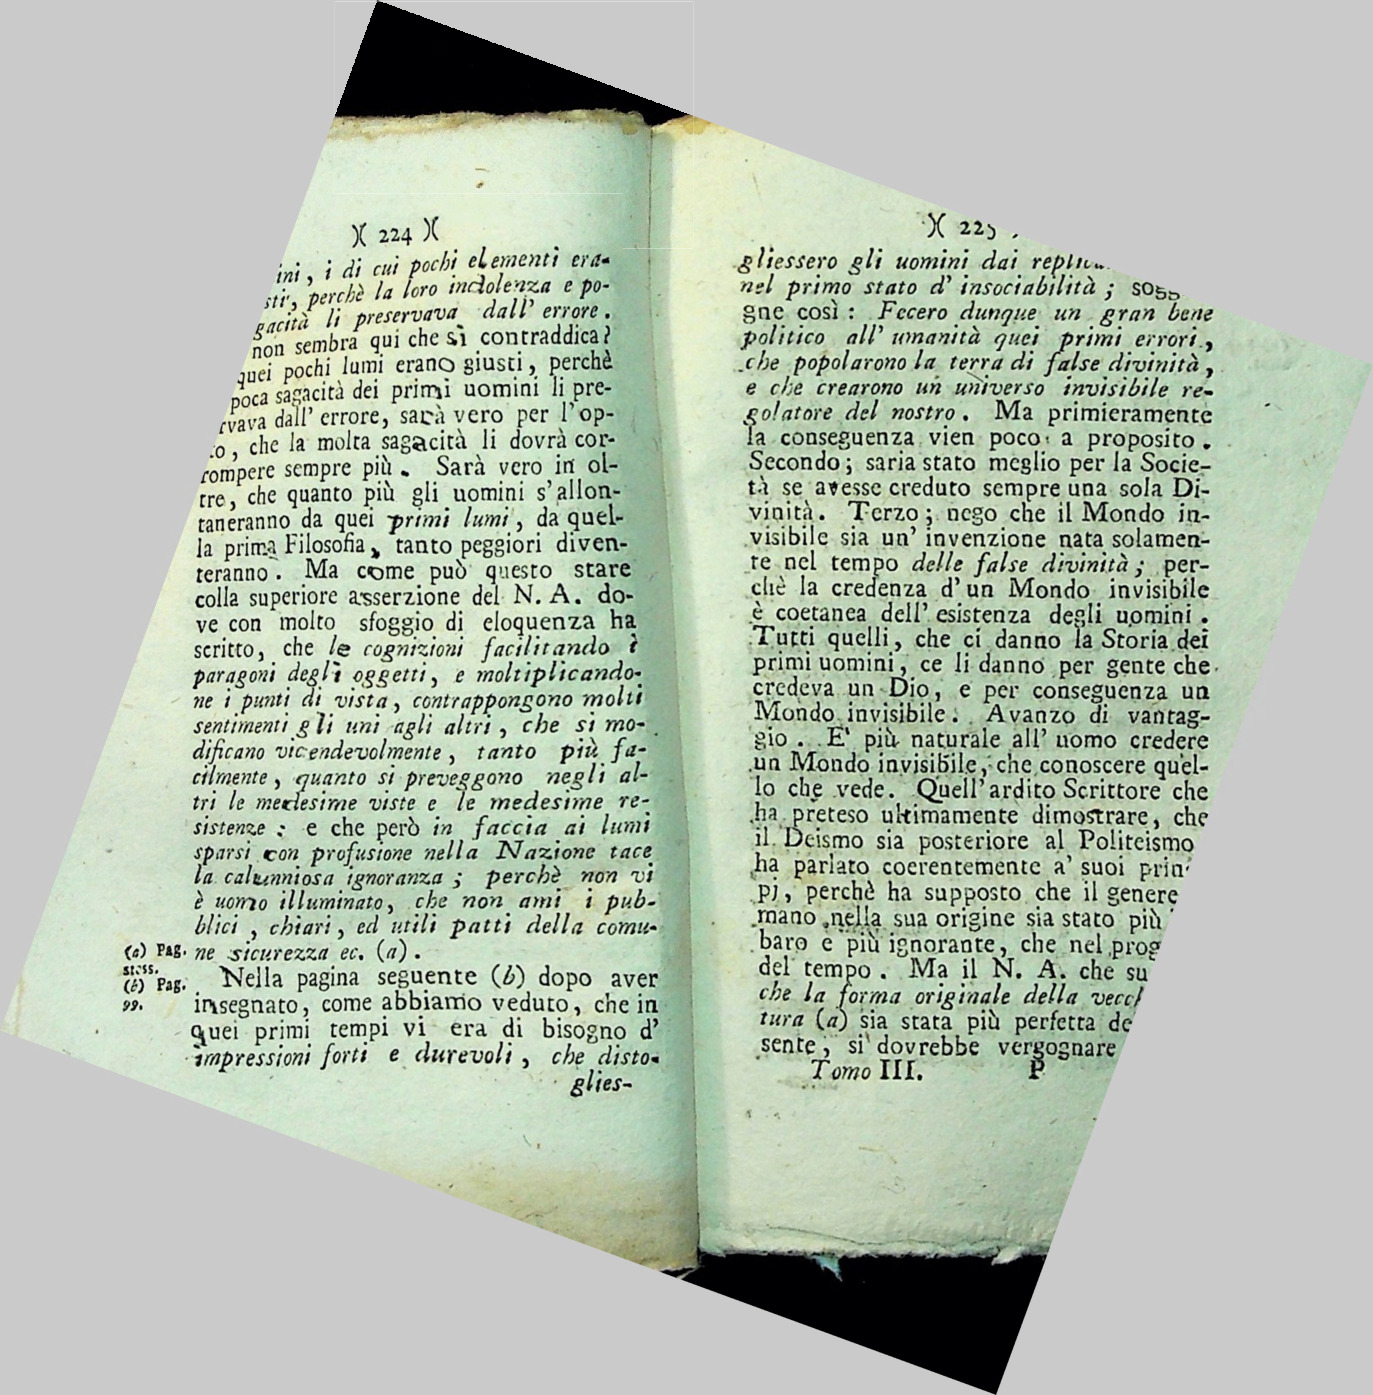 )( 224 )(
i di cui pochi elementi era-
perchè la loro indolenza e po-
li preservava dall' errore.
non sembra qui che si contraddica?
quei pochi lumi erano giusti, perchè
poca sagacità dei primi uomini li pre-
dall' errore, sarà vero per l'op-
, che la molta sagacità li dovrà cor-
rompere sempre più. Sarà vero in ol-
tre, che quanto più gli uomini s'allon-
taneranno da quei primi lumi, da quel-
la prima Filosofia, tanto peggiori diven-
teranno. Ma come può questo stare
colla superiore asserzione del N. A. do-
ve con molto sfoggio di eloquenza ha
scritto, che le cognizioni facilitando i
paragoni degli oggetti, e moltiplicando-
ne i punti di vista, contrappongono molti
sentimenti gli uni agli altri, che si mo-
dificano vicendevolmente, tanto più fa-
cilmente, quanto si preveggono negli al-
tri le medesime viste e le medesime re-
sistenze: e che però in faccia ai lumi
sparsi con profusione nella Nazione tace
la calunniosa ignoranza; perchè non vi
è uomo illuminato, che non ami i pub-
blici, chiari, ed utili patti della comu-
ne sicurezza ec. (a).
(a) Pag.
stess.
Nella pagina seguente (b) dopo aver
(b) Pag.
99.
insegnato, come abbiamo veduto, che in
quei primi tempi vi era di bisogno d'
impressioni forti e durevoli, che disto-
glies-
)( 225
gliessero gli uomini dai
nel primo stato d' insociabilità;
gne così: Fecero dunque un gran bene
politico all' umanità quei primi errori,
che popolarono la terra di false divinità,
e che crearono un universo invisibile re-
golatore del nostro. Ma primieramente
la conseguenza vien poco a proposito.
Secondo; saria stato meglio per la Socie-
tà se avesse creduto sempre una sola Di-
vinità. Terzo; nego che il Mondo in-
visibile sia un' invenzione nata solamen-
te nel tempo delle false divinità; per-
chè la credenza d'un Mondo invisibile
è coetanea dell' esistenza degli uomini.
Tutti quelli, che ci danno la Storia dei
primi uomini, ce li danno per gente che
credeva un Dio, e per conseguenza un
Mondo invisibile. Avanzo di vantag-
gio. E' più naturale all' uomo credere
un Mondo invisibile, che conoscere quel-
lo che vede. Quell'ardito Scrittore che
ha preteso ultimamente dimostrare, che
il Deismo sia posteriore al Politeismo
ha parlato coerentemente a' suoi prin
pj, perchè ha supposto che il genere
mano nella sua origine sia stato più
baro e più ignorante, che nel
del tempo. Ma il N. A. che
che la forma originale della
tura (a) sia stata più perfetta
sente, si dovrebbe vergognare
Tomo III. P